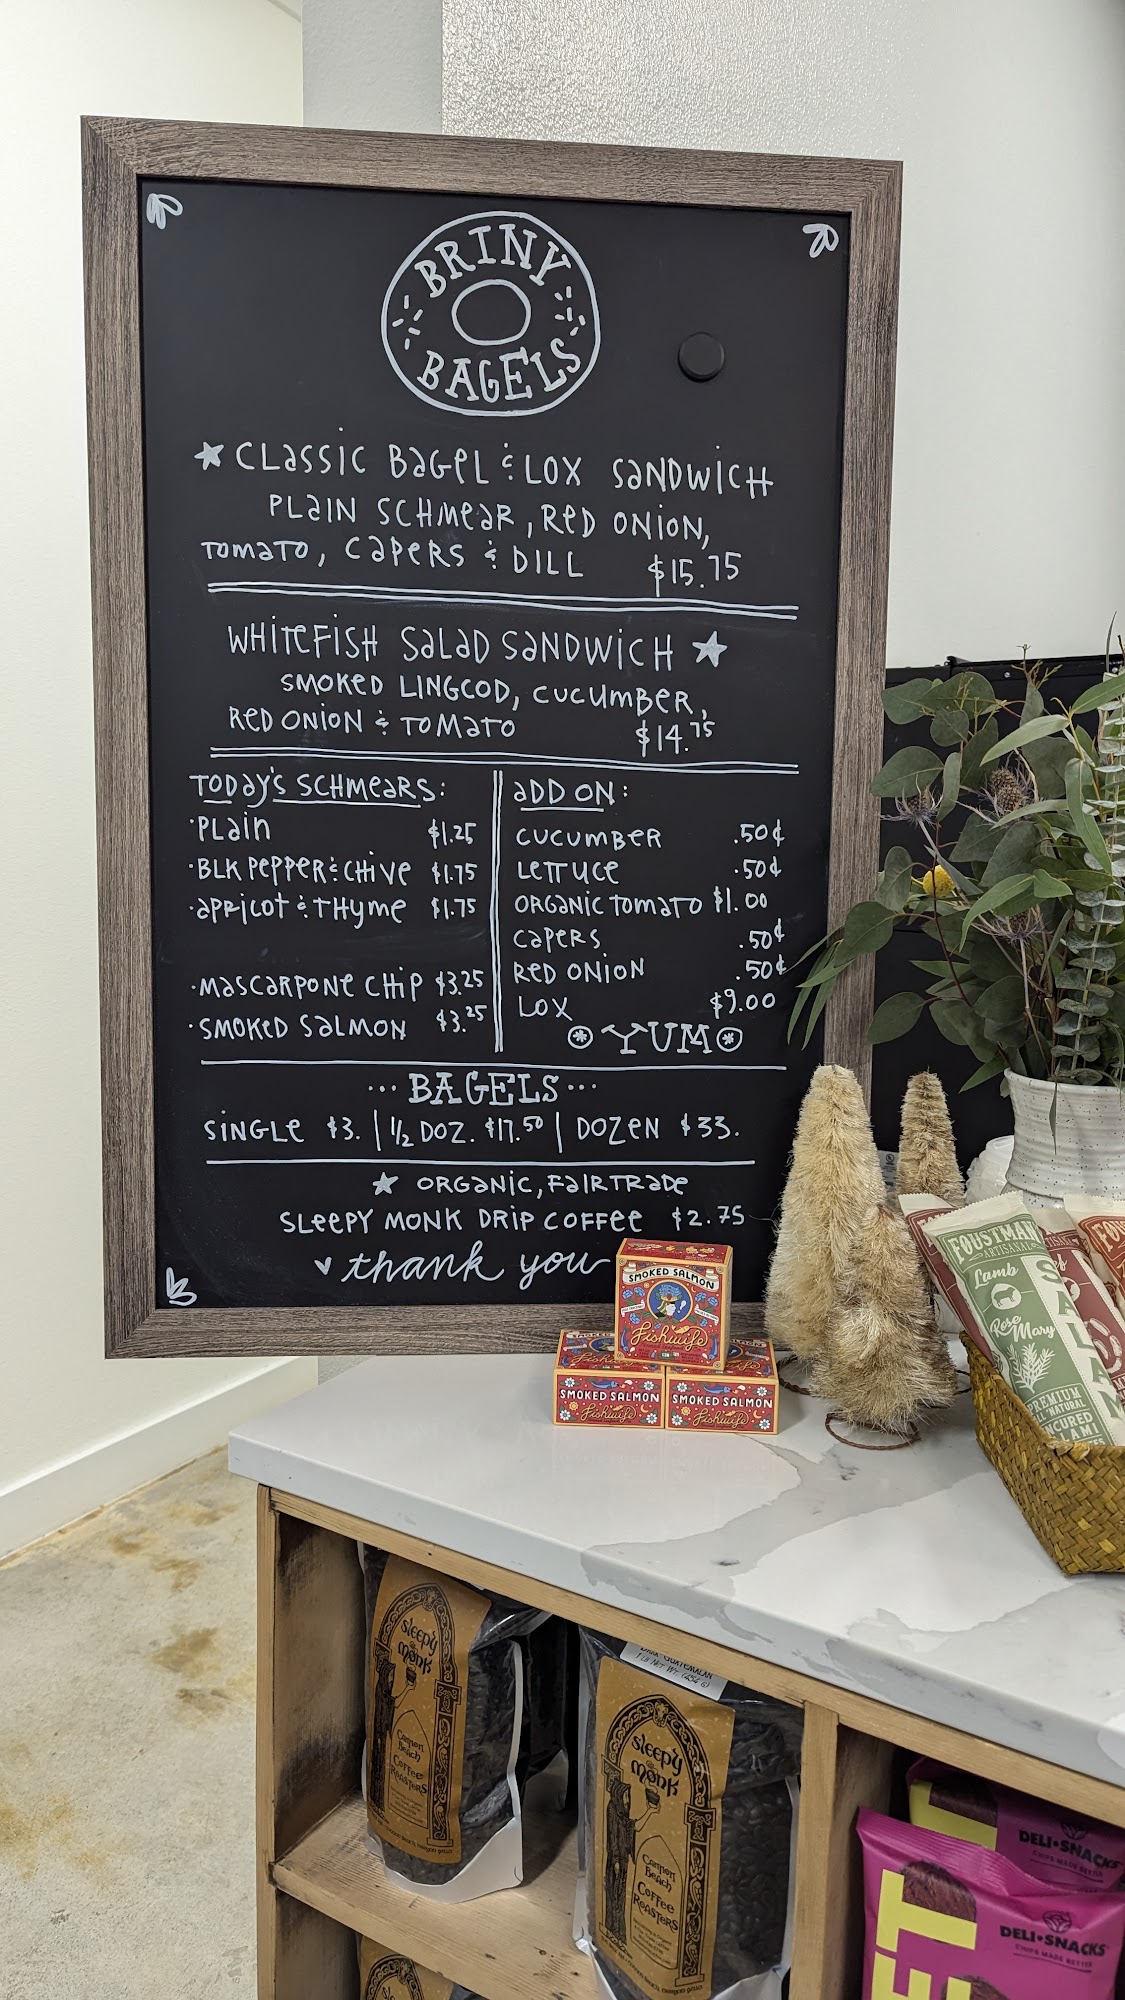 BRINY
BAGELS
CLASSIC BAGEL & LOX SANDWICH
PLAIN SCHMEAR, RED ONION,
TOMATO, CAPERS & DILL $15.75
WHITEFISH SALAD SANDWICH
SMOKED LINGCOD, CUCUMBER,
RED ONION & TOMATO $14.75
TODAY'S SCHMEARS:
·PLAIN $1.25
·BLK PEPPER & CHIVE $1.75
·APRICOT & THYME $1.75
·MASCARPONE CHIP $3.25
·SMOKED SALMON $3.25
ADD ON:
CUCUMBER .50¢
LETTUCE .50¢
ORGANIC TOMATO $1.00
CAPERS .50¢
RED ONION .50¢
LOX $9.00
YUM
...BAGELS...
SINGLE $3. | 1/2 DOZ. $17.50 | DOZEN $33.
ORGANIC, FAIRTRADE
SLEEPY MONK DRIP COFFEE $2.75
thank you
SMOKED SALMON
Fishwife
SMOKED SALMON
Fishwife
SMOKED SALMON
Fishwife
FOUSTMAN
ARTISANAL
Lamb
Rose Mary
SALAM
PREMIUM
sleepy
monk
Cannon
Beach
Coffee
Roasters
DARK GUATEMALAN
1 LB NET WT (454 G)
sleepy
monk
Cannon
Beach
Coffee
Roasters
DELI•SNACKS
CHIPS MADE BETTER
DELI•SNACKS
CHIPS MADE BETTER